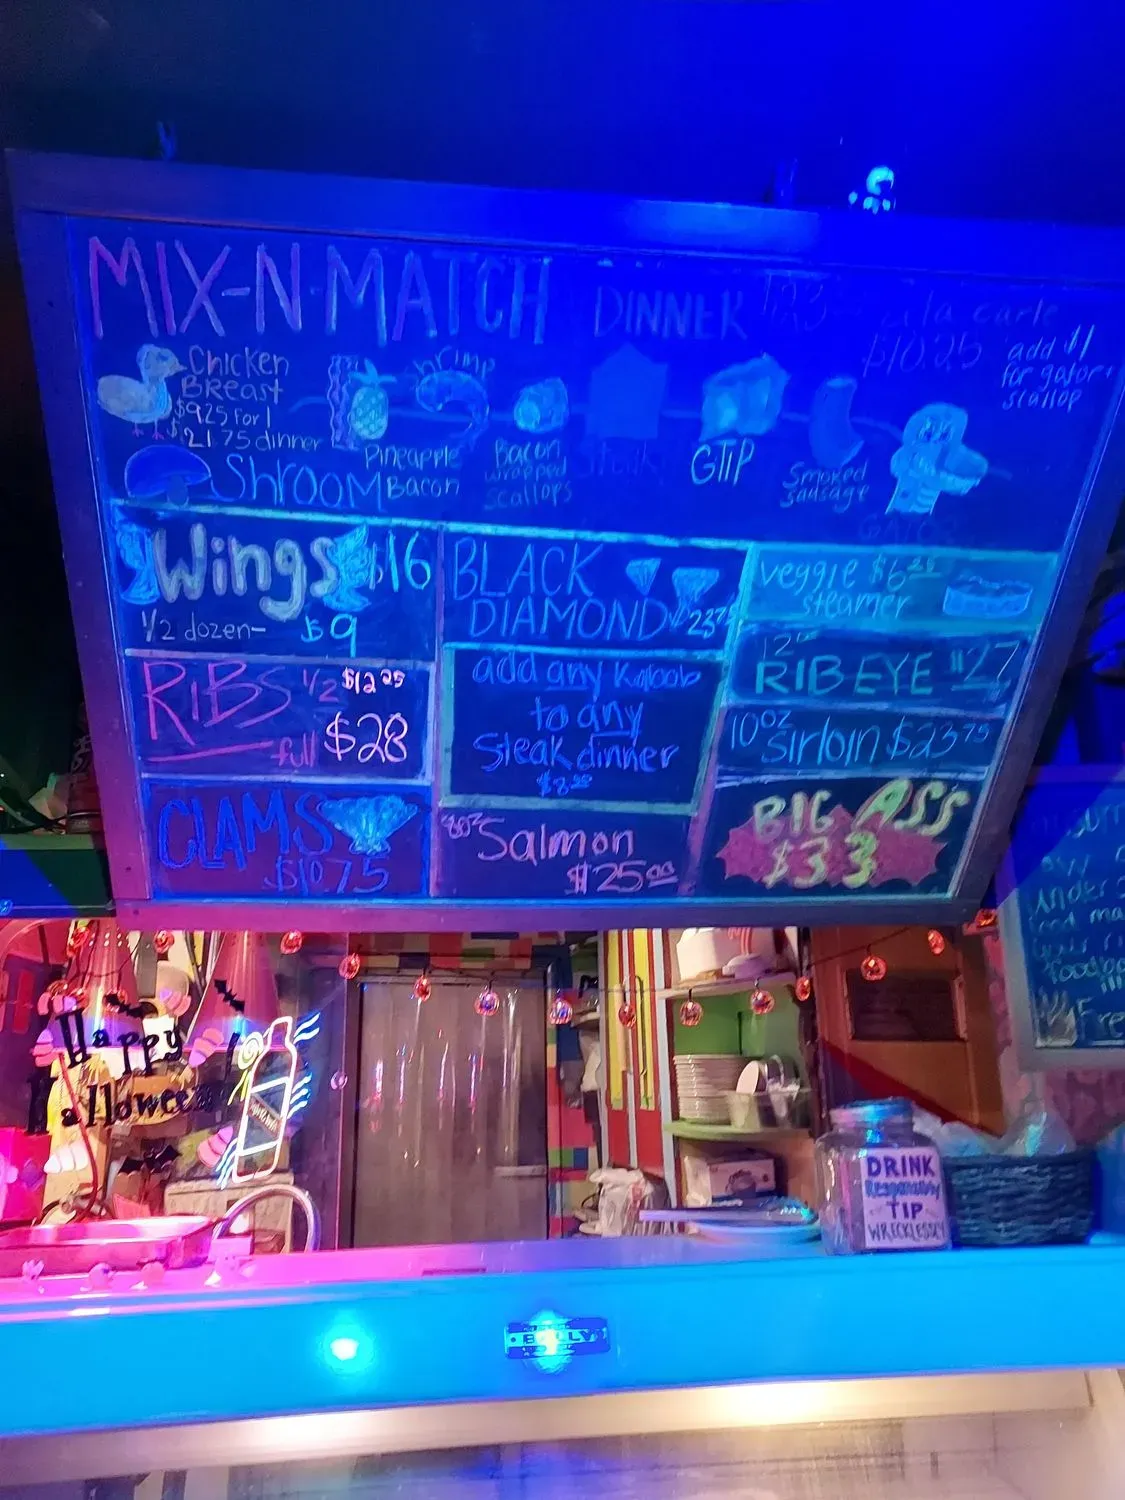 MIX-N-MATCH DINNER $23 a la carte
$10.25
add $1
for gator
scallop
Chicken
Breast
$9.25 for 1
$21.75 dinner
Shroom
Pineapple
Bacon
Shrimp
Bacon
wrapped
scallops
Steak
GTIP
Smoked
sausage
GATOR
Wings $16
1/2 dozen- $9
RIBS 1/2 $12.25
full $28
CLAMS
$10.75
BLACK
DIAMOND
add any Kabob
to any
Steak dinner
8oz Salmon
$25.00
veggie $6.25
steamer
RIBEYE $27
10oz Sirloin $23.75
BIG ASS
$33
under
food
Free
Happy
Halloween
DRINK
Responsibly
TIP
WRECKLESSLY